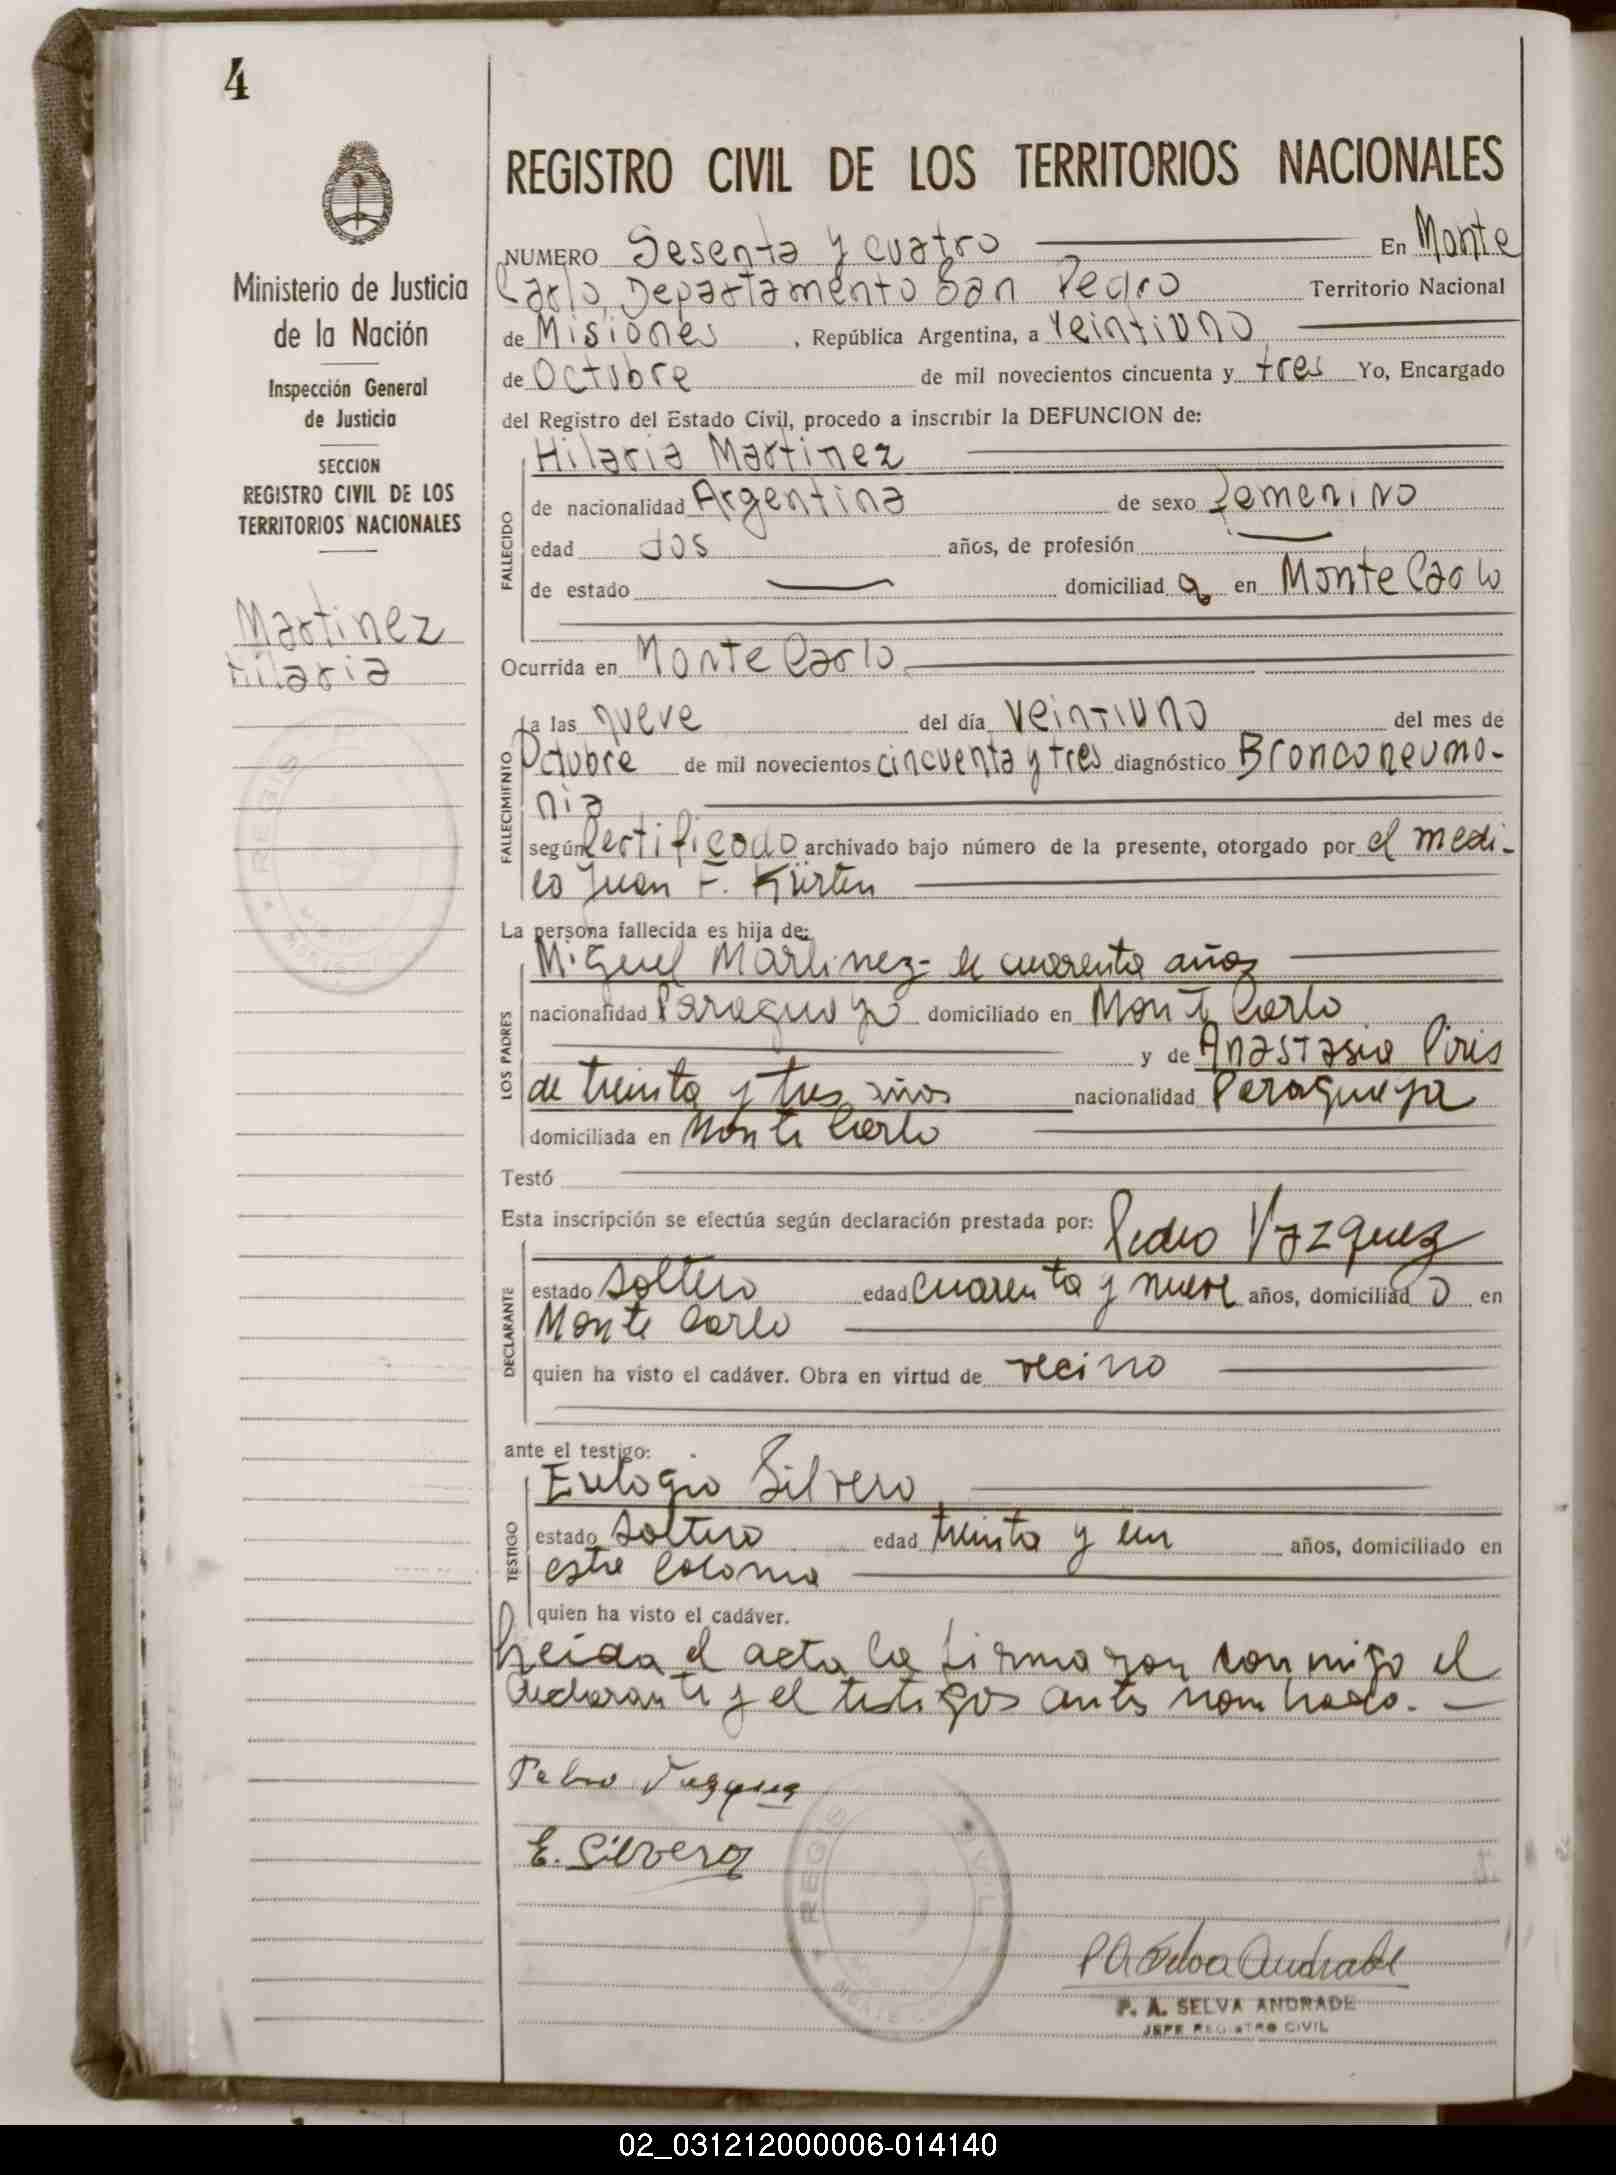 4
REGISTRO CIVIL DE LOS TERRITORIOS NACIONALES
Ministerio de Justicia
de la Nación
Inspección General
de Justicia
SECCION
REGISTRO CIVIL DE LOS
TERRITORIOS NACIONALES
Martinez
Hilaria
NUMERO Sesenta y cuatro En Monte
Carlo, Departamento San Pedro Territorio Nacional
de Misiones , República Argentina, a Veintiuno
de Octubre de mil novecientos cincuenta y tres Yo, Encargado
del Registro del Estado Civil, procedo a inscribir la DEFUNCION de:
Hilaria Martinez
FALLECIDO
de nacionalidad Argentina de sexo femenino
edad dos años, de profesión
de estado domiciliad a en Monte Carlo
Ocurrida en Monte Carlo
FALLECIMIENTO
a las nueve del día veintiuno del mes de
Octubre de mil novecientos cincuenta y tres diagnóstico Bronconeumo-
nia
según Certificado archivado bajo número de la presente, otorgado por el medi-
co Juan F. Kürten
La persona fallecida es hija de:
LOS PADRES
Miguel Martinez - de cuarenta años
nacionalidad Paraguayo domiciliado en Monte Carlo
y de Anastasia Piris
de treinta y tres años nacionalidad Paraguaya
domiciliada en Monte Carlo
Testó
Esta inscripción se efectúa según declaración prestada por: Pedro Vazquez
DECLARANTE
estado soltero edad cuarenta y nueve años, domiciliad o en
Monte Carlo
quien ha visto el cadáver. Obra en virtud de vecino
ante el testigo:
TESTIGO
Eulogio Silvero
estado soltero edad treinta y un años, domiciliado en
esta Colonia
quien ha visto el cadáver.
Leida el acta la firmaron conmigo el
declarante y el testigos antes nombrado. -
Pedro Vazquez
E. Silvero
REGIS
CIVIL
REGIS
P A Selva Andrade
P. A. SELVA ANDRADE
JEFE REGISTRO CIVIL
02_031212000006-014140